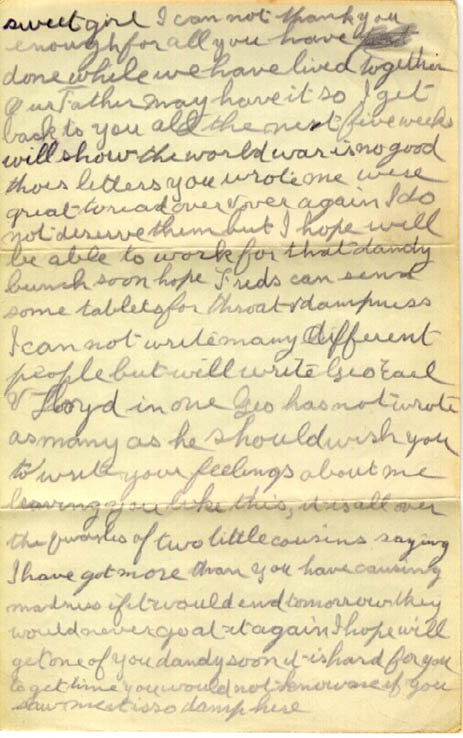 sweet girl I can not thank you
enough for all you have
done while we have lived together
Our Father may have it so I get
back to you all the next five weeks
will show the world war is no good
thoes letters you wrote me were
great to read over & over again I do
not deserve them but I hope will
be able to work for that dandy
bunch soon hope Freds can send
some tablets for throat & dampness
I can not write many different
people but will write Geo Earl
& Lloyd in one Geo has not wrote
as many as he should wish you
to write your feelings about me
leaving you like this, it is all over
the of two little cousins saying
I have got more than you have causing
madness if it would end tomorrow they
would never go at it again I hope will
get one of you dandy soon it is hard for you
to get time you would not know me if you
saw me it is so damp here